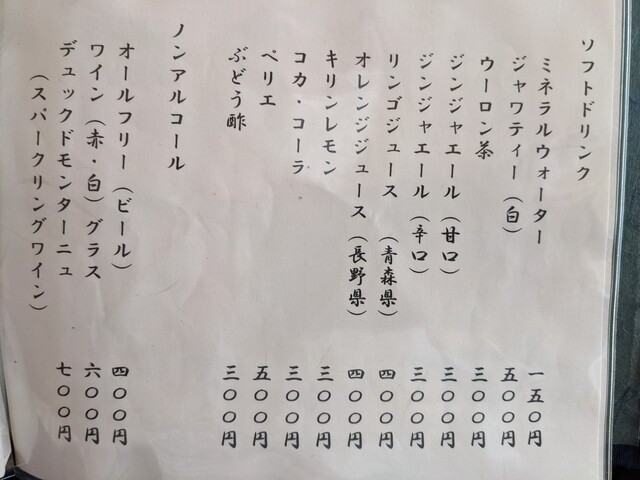 ソフトドリンク
ミネラルウォーター 一五〇円
ジャワティー（白） 五〇〇円
ウーロン茶 三〇〇円
ジンジャエール（甘口） 三〇〇円
ジンジャエール（辛口） 三〇〇円
リンゴジュース（青森県） 四〇〇円
オレンジジュース（長野県） 四〇〇円
キリンレモン 三〇〇円
コカ・コーラ 三〇〇円
ペリエ 五〇〇円
ぶどう酢 三〇〇円
ノンアルコール
オールフリー（ビール） 四〇〇円
ワイン（赤・白）グラス 六〇〇円
デュックドモンターニュ 七〇〇円
（スパークリングワイン）